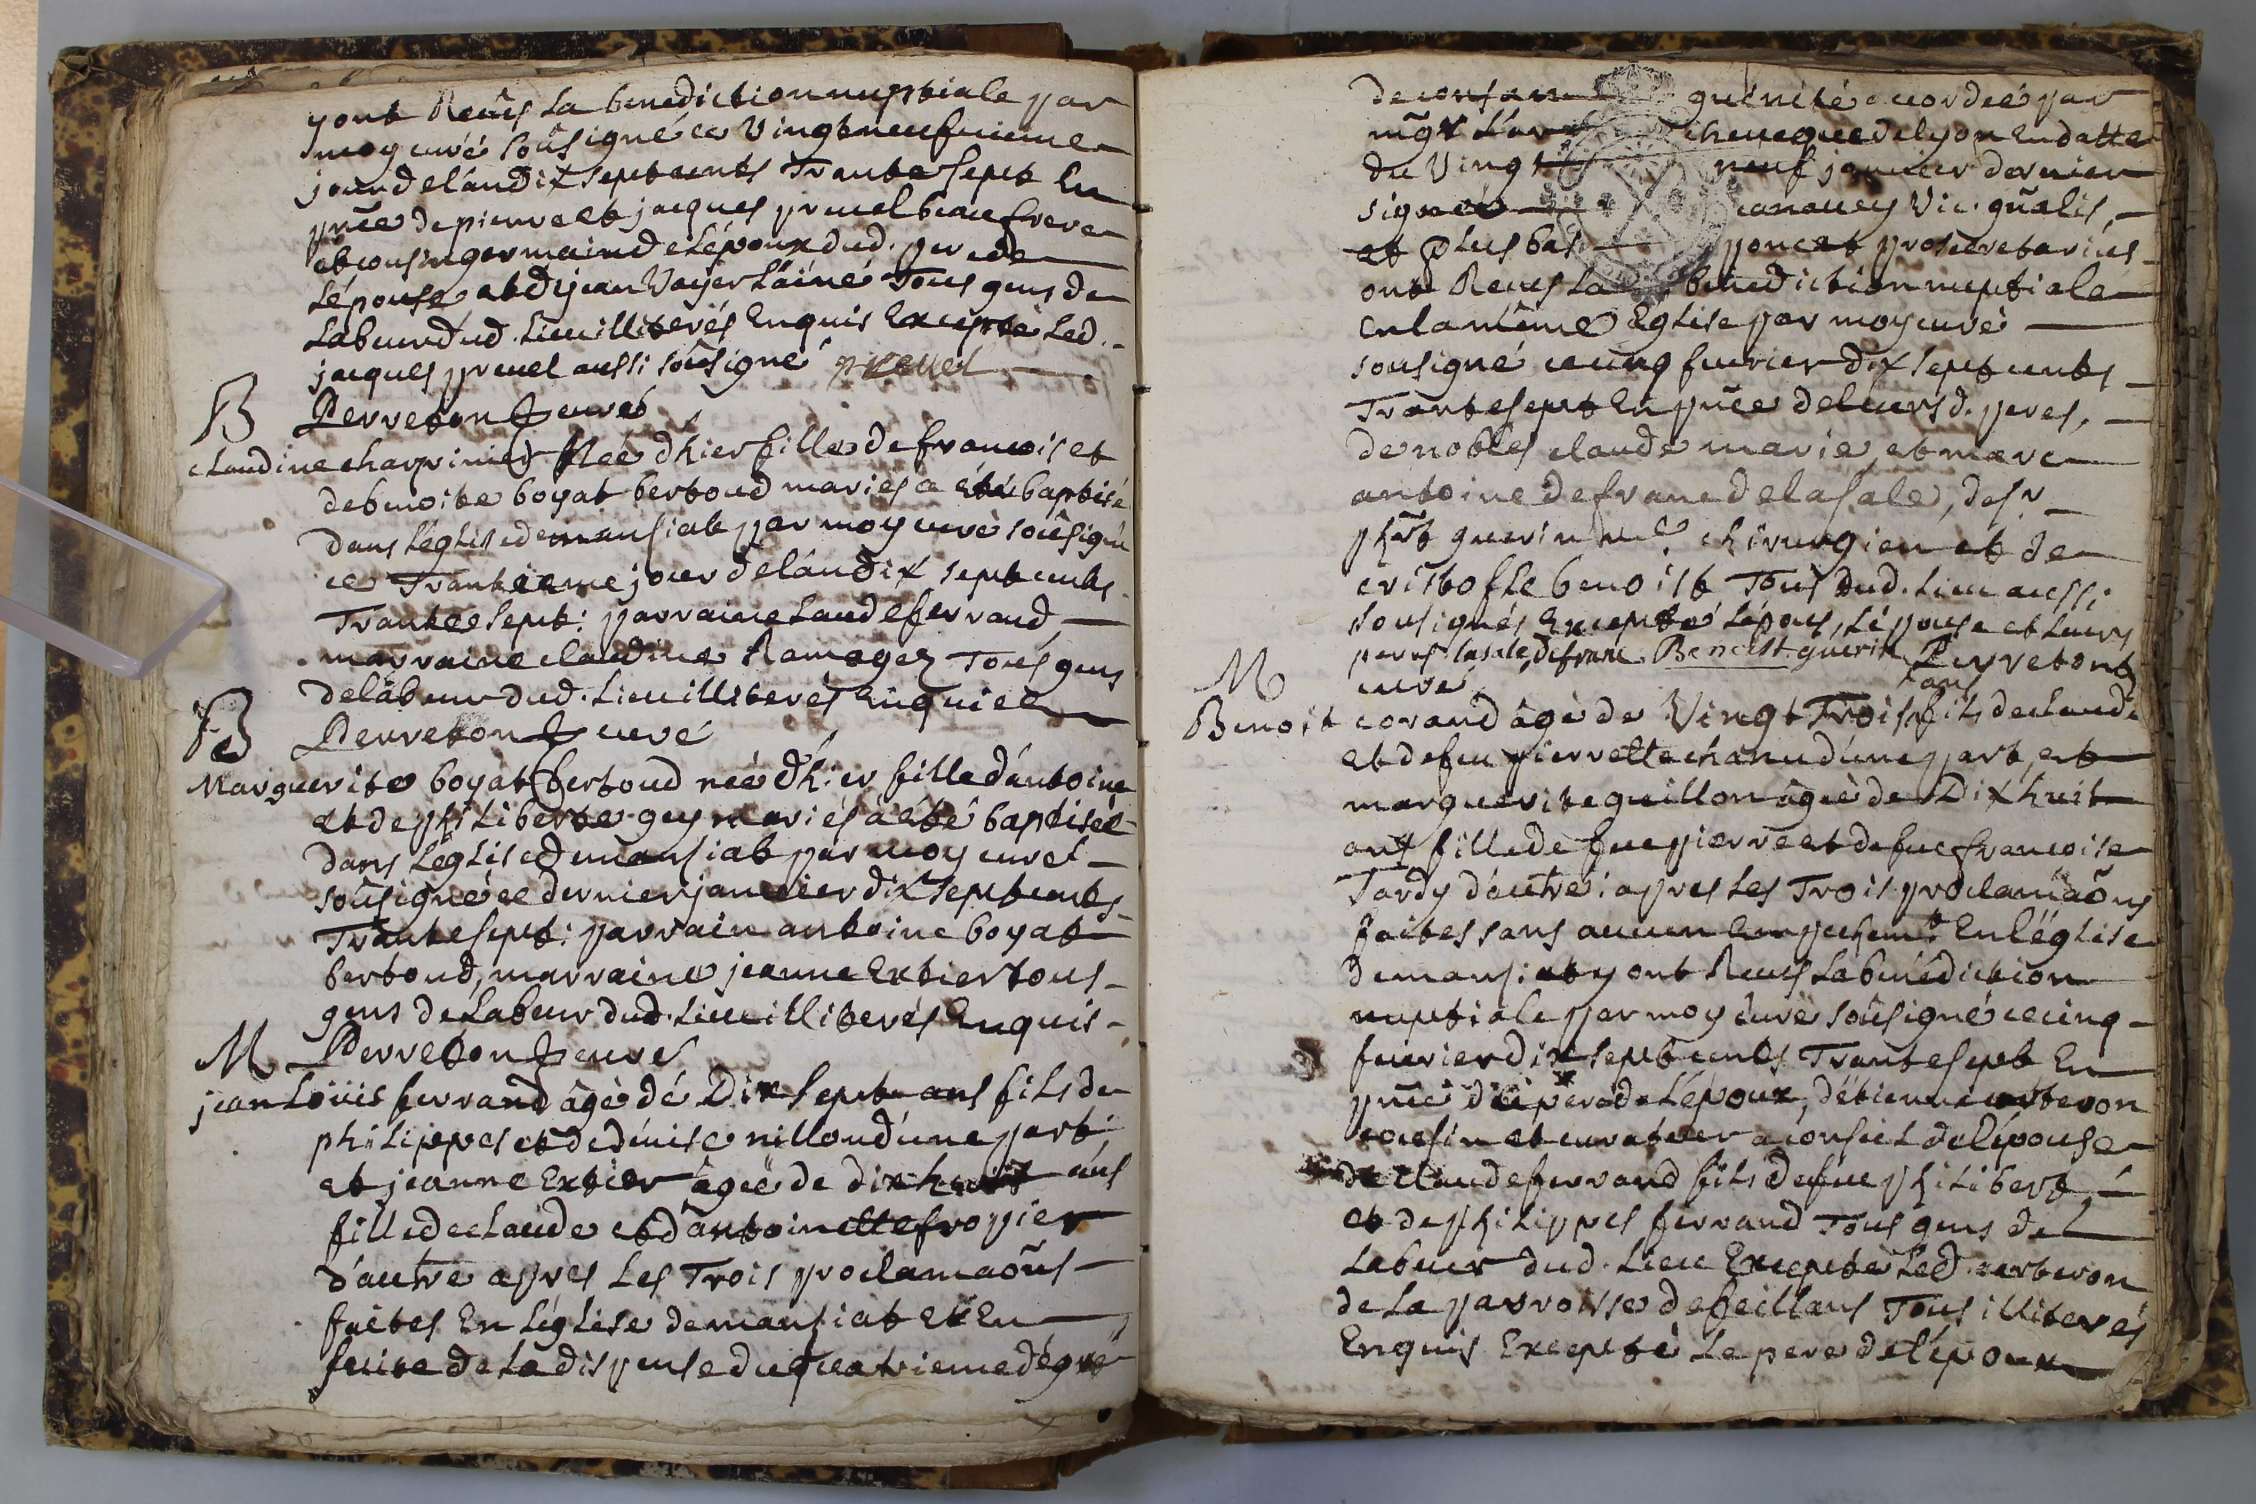 yont Reçus La benediction nuptiale par
moy curé soûsigné ce Vingt neufvieme
jour de lán dix sept cents Trante sept En
pñce de pierre et jacques pruel beaufrere
et cousin germain de Lépoux dud. pere de
Lépouse et de jean Vayer Láiné Tous gens de
Labeur dud. Lieu illiterés Enquis Excepté Led.
jacques pruel aussi soûsigné pruel
B Perreton curé
claudine charpinied Née d'hier fille de francois et
de benoite boyat bertoud mariés a été baptisé
dans Léglise de mansiat par moy curé soûsigné
ce Trantieme jour de lán dix sept cents
Trante sept: parrain claude ferrand
marraine claudine Ramagez Tous gens
de labeur dud. Lieu illiterés Enquis
B Perreton curé
Marguerite boyat bertoud née d'hier fille d'antoine
et de philiberte guy mariés a été baptisée
dans Léglise de mansiat par moy curé
soûsigné ce dernier janvier dix sept cents
Trante sept: parrain antoine boyat
bertoud, marraine jeanne Extier tous
gens de Labeur dud. Lieu illiterés Enquis
M Perreton curé
jean Loüis ferrand âgé de Dix sept ans fils de
philippes et de denise nillon d'une part
et jeanne Extier âgée de dix huit ans
fille de claude et d'antoinette fropier
d'autre apres Les Trois proclamaõns
faites En Léglise de mansiat et En
suite de La dispense du quatrieme dégré
de consan guinité accordée par
mgr L'ar cheveque de lyon En datte
du Vingt neuf janvier dernier
signée Vic. gñalis,
et plus bas poncet prosecretarius
ont Reçus La bénediction nuptiale
En la même Eglise par moy curé
sousigné ce cinq fevrier dix sept cents
Trante sept En pñce de leurs d. peres,
de nobles claude marie et marc
antoine de franc de la sale, de sr
phbt guerin me chirurgien et de
cristofle benoist Tous dud. Lieu aussi
sousignés Excepté Lépoux, Lépouse et Leurs
peres lasale, defranc Benoist guerin Perreton
curé
M
Benoit corand âgé de Vingt Trois ans fils de claude
et de feu pierrette chanu d'une part, et
marguerite guillon âgée de Dix huit
ans fille de feu pierre et de feue francoise
Tardy d'autre: apres Les Trois proclamaõns
faites sans aucun Empechemt En Léglise
de mansiat y ont Reçus La bénédiction
nuptiale par moy curé soûsigné ce cinq
fevrier dix sept cents Trante sept En
pñce du pere de Lépoux, d'étienne
cousin et curateur a conseil de lépouse
de claude ferrand fils de feu philibert,
et de philippes ferrand Tous gens de
Labeur dud. Lieu Excepté Led.
de La parroisse de feillans Tous illiterés
Enquis Excepté Le pere de lépoux